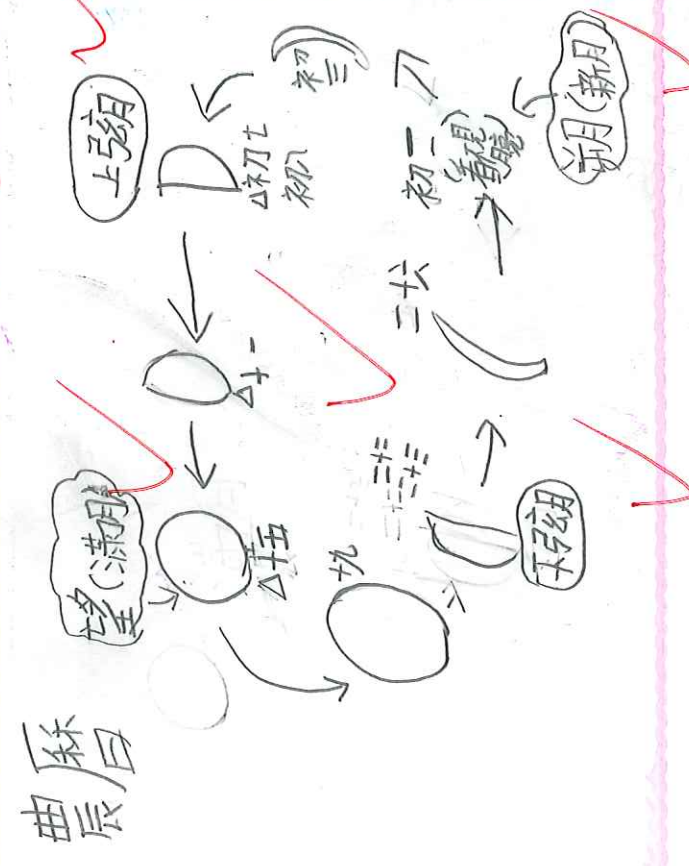 農曆
朔月(新月)
初一
(看不見)
初三
上弦月
初七
初八
十一
望(滿月)
十五
十九
二十二
二十三
下弦月
二十六